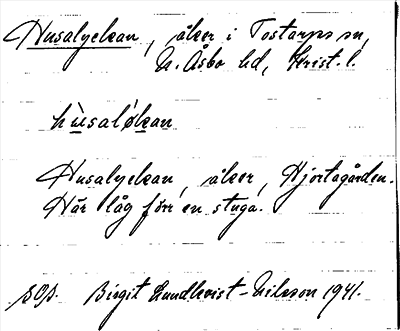 Husalyckan, åker i Tostarps sn,
N. Åsbo hd, Krist. l.
hùsaløkan
Husalyckan, åker, Hjortagården.
Här låg förr en stuga.
sOp. Birgit Lundkvist-Nilsson 1941.